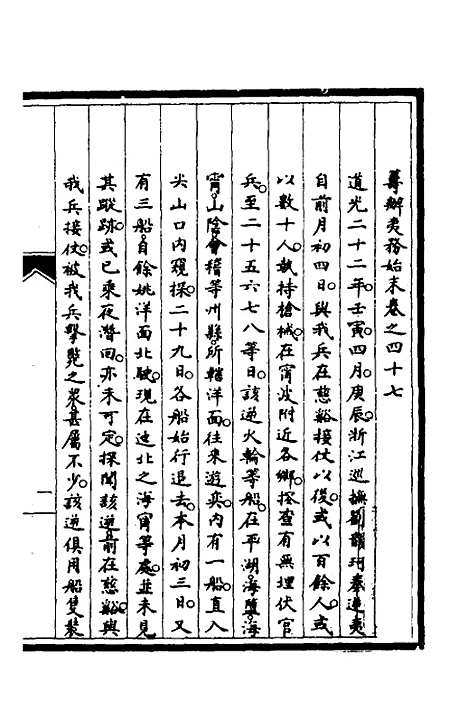 籌辦夷務始末卷之四十七
道光二十二年壬寅四月庚辰浙江巡撫劉韻珂奏逆夷
自前月初四日與我兵在慈谿接仗以後或以百餘人或
以數十人執持槍械在甯波附近各鄉搜查有無埋伏官
兵至二十五六七八等日該逆火輪等船在平湖海鹽海
甯山陰會稽等州縣所轄洋面往來遊奕內有一船直入
尖山口內窺探二十九日各船始行退去本月初三日又
有三船自餘姚洋面北駛現在迆北之海甯等處並未見
其蹤跡或已乘夜潛回亦未可定探聞該逆前在慈谿與
我兵接仗被我兵擊斃之衆甚屬不少該逆俱用船隻裝
二